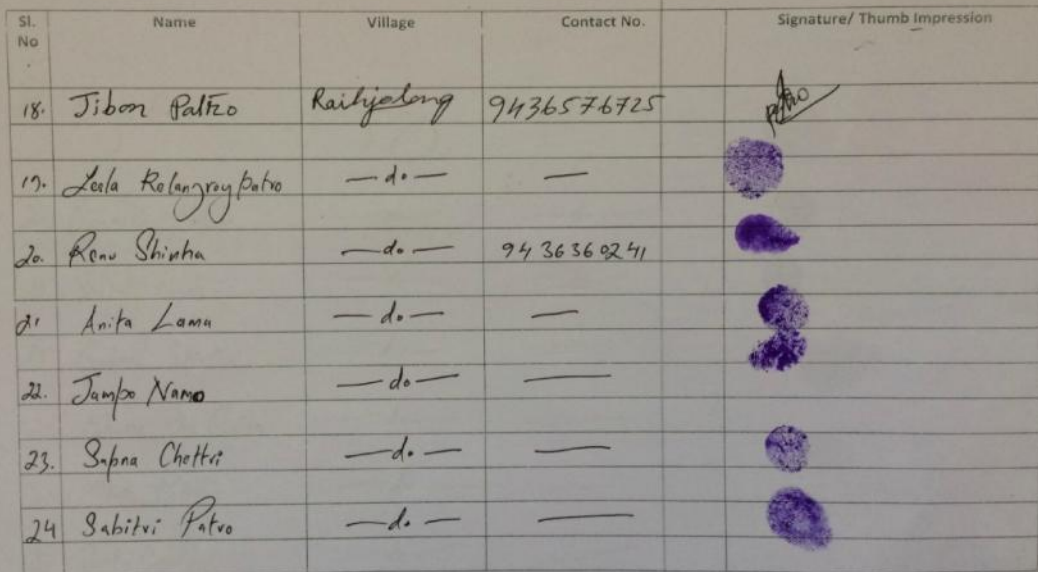 Sl. No Name Village Contact No. Signature/ Thumb Impression
18. Jibon Patro Railyjalong 9436576725 Patro
19. Leela Rolangroy Patro —do— —
20. Renu Shinha —do— 9436360241
21 Anita Lama —do— —
22. Jampo Namo —do— —
23. Sapna Chettri —do— —
24 Sabitri Patro —do— —